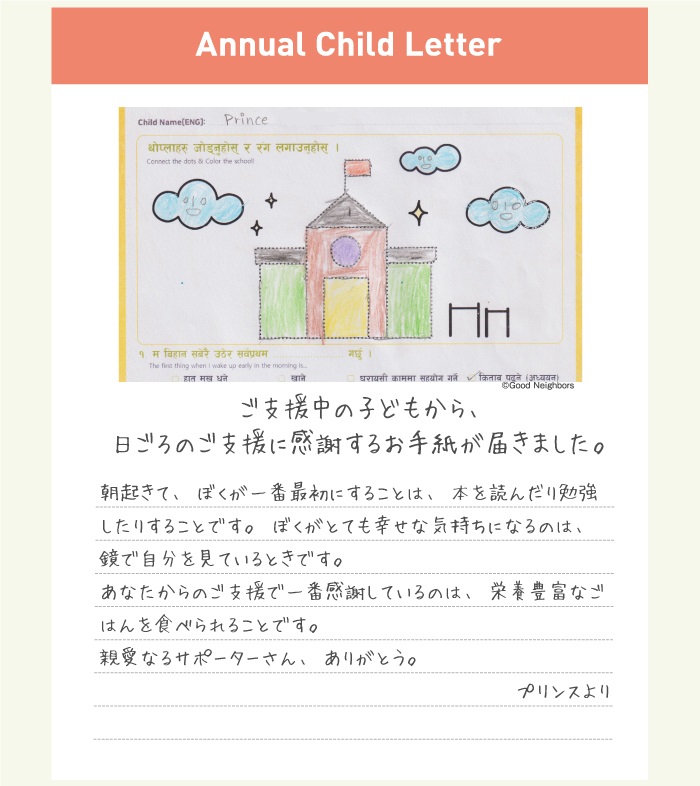 Annual Child Letter
Child Name[ENG]: Prince
थोप्लाहरु जोड्नुहोस् र रंग लगाउनुहोस् ।
Connect the dots & Color the school!
१ म बिहान सबेरै उठेर सर्वप्रथम ........................ गर्छु ।
The first thing when I wake up early in the morning is...
हात मुख धुने खाने घरायसी काममा सहयोग गर्ने किताब पढ्ने (अध्ययन)
©Good Neighbors
ご支援中の子どもから、
日ごろのご支援に感謝するお手紙が届きました。
朝起きて、ぼくが一番最初にすることは、本を読んだり勉強
したりすることです。ぼくがとても幸せな気持ちになるのは、
鏡で自分を見ているときです。
あなたからのご支援で一番感謝しているのは、栄養豊富なご
はんを食べられることです。
親愛なるサポーターさん、ありがとう。
プリンスより